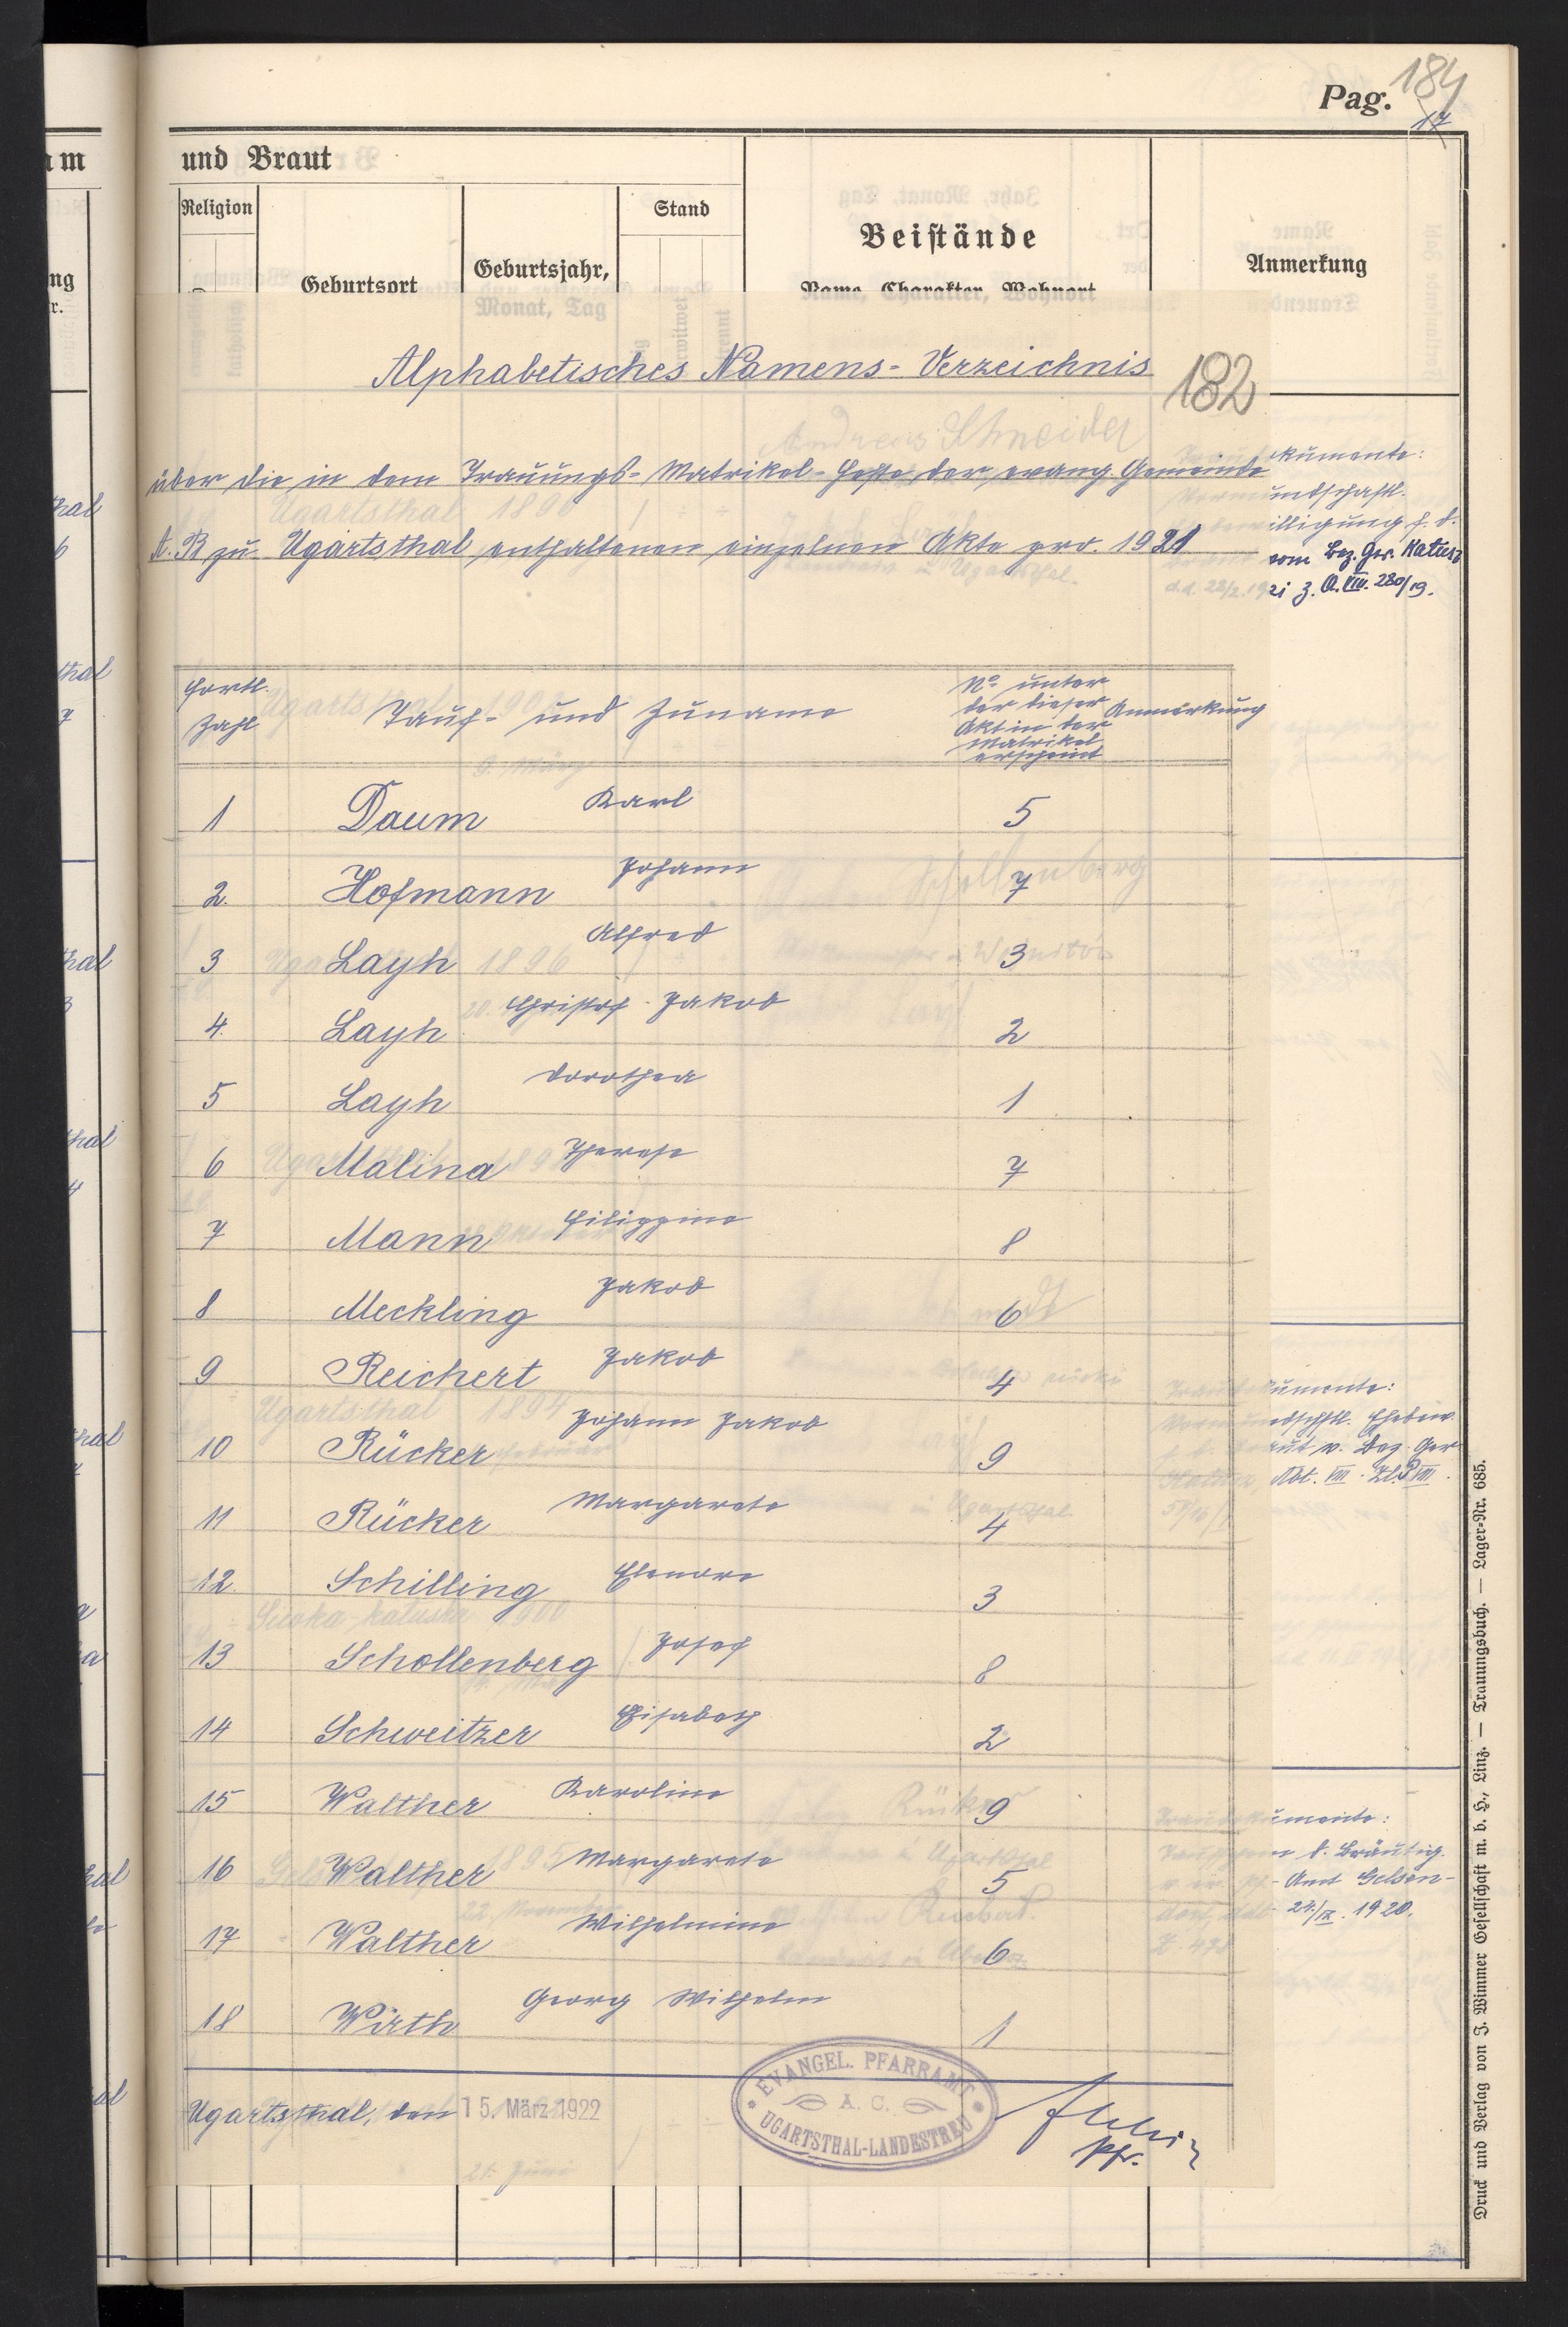 Pag. 184
17
und Braut
Religion
Stand
Geburtsort
Geburtsjahr,
Monat, Tag
Beistände
Name, Charakter, Wohnort
Anmerkung
Alphabetisches Namens-Verzeichnis
182
über die in dem Trauungs-Matrikel-Hefte der evang. Gemeinde
A. B zu Ugartsthal enthaltenen einzelnen Akte pro. 1921
Fortl. Zahl
Tauf- und Zuname
No unter der dieser Akt in der Matrikel erscheint
Anmerkung
1 Daum Karl 5
2. Hofmann Johann 7
3 Layh Alfred 3
4. Layh Christof Jakob 2
5 Layh Dorothea 1
6 Malina Therese 7
7 Mann Filippine 8
8 Meckling Jakob 6
9 Reichert Jakob 4
10 Rücker Johann Jakob 9
11 Rücker Margarete 4
12. Schilling Elenore 3
13 Schollenberg Josef 8
14 Schweitzer Elisabeth 2
15 Walther Karoline 9
16 Walther Margarete 5
17 Walther Wilhelmine 6
18 Wirth Georg Wilhelm 1
Ugartsthal, den 15. März 1922
EVANGEL. PFARRAMT
A. C.
UGARTSTHAL-LANDESTREU
Pfr.
kumente:
undschaftl.
illigung f. d.
vom Bez. Ger. Kalusz
21 z. A. VIII. 280/19.
umente:
v. Bez. Ger
Abt. VIII
umente:
n d. Bräutig.
Amt Gelsen-
24/IX. 1920.
Druck und Verlag von J. Wimmer Gesellschaft m. b. H., Linz. — Trauungsbuch. — Lager-Nr. 685.